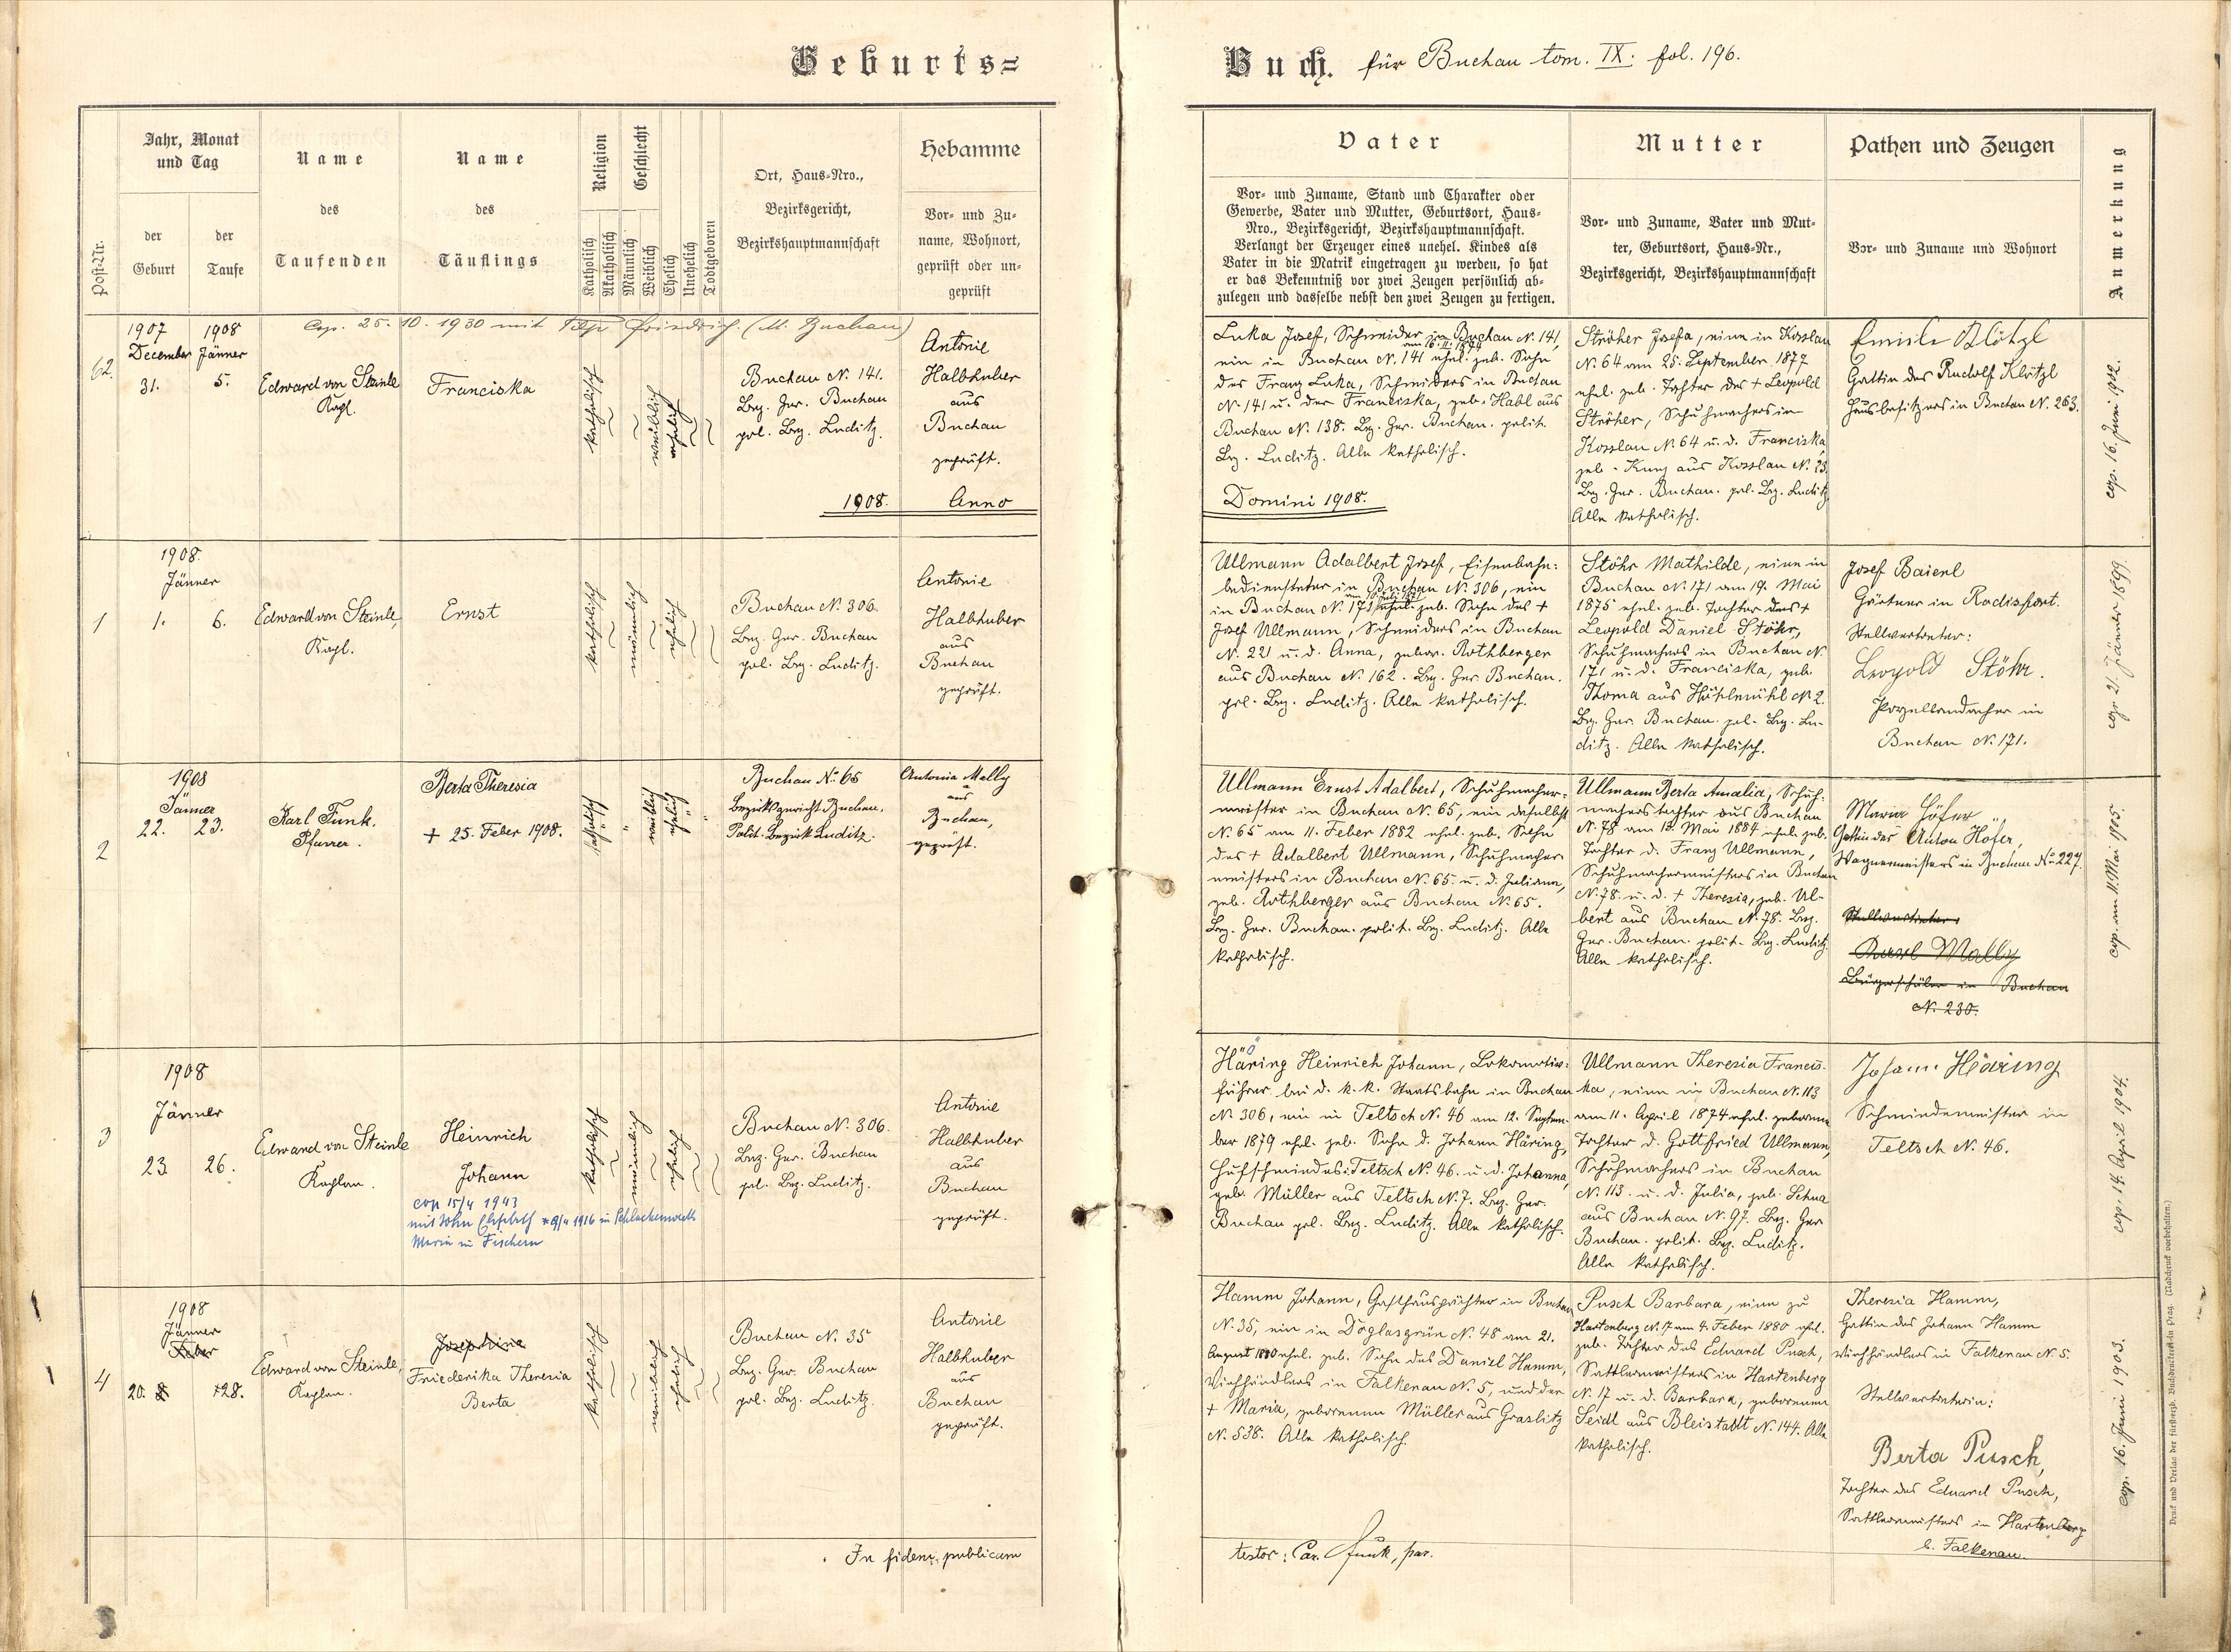 Geburts=
Buch. für Buchau tom. IX. fol. 196.
Post-Nr.
Jahr, Monat
und Tag
der
Geburt
der
Taufe
Name
des
Taufenden
Name
des
Täuflings
Religion
Katholisch
Akatholisch
Geschlecht
Männlich
Weiblich
Ehelich
Unehelich
Todtgeboren
Ort, Haus-Nro.,
Bezirksgericht,
Bezirkshauptmannschaft
Hebamme
Vor- und Zu-
name, Wohnort,
geprüft oder un-
geprüft
Vater
Vor- und Zuname, Stand und Charakter oder
Gewerbe, Vater und Mutter, Geburtsort, Haus-
Nro., Bezirksgericht, Bezirkshauptmannschaft.
Verlangt der Erzeuger eines unehel. Kindes als
Vater in die Matrik eingetragen zu werden, so hat
er das Bekenntniß vor zwei Zeugen persönlich ab-
zulegen und dasselbe nebst den zwei Zeugen zu fertigen.
Mutter
Vor- und Zuname, Vater und Mut-
ter, Geburtsort, Haus-Nr.,
Bezirksgericht, Bezirkshauptmannschaft
Pathen und Zeugen
Vor- und Zuname und Wohnort
Anmerkung
Cop. 25. 10. 1930 mit Friedrich (M. Buchau)
62.
1907
December
31.
1908
Jänner
5.
Edward von Steinle
Kapl.
Franciska
katholisch
weiblich
ehelich
Buchau N. 141.
Bez. Ger. Buchau
pol. Bez. Luditz.
Antonie
Halbhuber
aus
Buchau
geprüft.
Luka Josef, Schneider in Buchau N. 141,
am 16. 11. 1874
ein in Buchau N. 141 ehel. geb. Sohn
des Franz Luka, Schneiders in Buchau
N. 141 u. der Franciska, geb. Habl aus
Buchau N. 138. Bez. Ger. Buchau. polit.
Bez. Luditz. Alle katholisch.
Ströher Josefa, eine in Kosslau
N. 64 am 25. September 1877
ehel. geb. Tochter des + Leopold
Ströher, Schuhmachers in
Kosslau N. 64 u. d. Franciska,
geb. Kunz aus Kosslau N. 23.
Bez. Ger. Buchau. pol. Bez. Luditz
Alle katholisch.
Emilie Klötzl
Gattin des Rudolf Klötzl
Hausbesitzers in Buchau N. 263.
cop. 16. Juni 1902.
1908. Anno
Domini 1908.
1
1908.
Jänner
1. 6.
Edward von Steinle,
Kapl.
Ernst
katholisch
männlich
ehelich
Buchau N. 306.
Bez. Ger. Buchau
pol. Bez. Luditz.
Antonie
Halbhuber
aus
Buchau
geprüft.
Ullmann Adalbert Josef, Eisenbahn-
bediensteter in Buchau N. 306, ein
in Buchau N. 171 ehel. geb. Sohn des +
Josef Ullmann, Schneiders in Buchau
N. 221 u. d. Anna, gebor. Rothberger
aus Buchau N. 162. Bez. Ger. Buchau.
pol. Bez. Luditz. Alle katholisch.
Stöhr Mathilde, eine in
Buchau N. 171 am 19. Mai
1875 ehel. geb. Tochter des +
Leopold Daniel Stöhr,
Schuhmachers in Buchau N.
171 u. d. Franciska, geb.
Thoma aus Höhlmühl N. 2.
Bez. Ger. Buchau. pol. Bez. Lu-
ditz. Alle katholisch.
Josef Baierl
Gärtner in Radisfort.
Stellvertreter:
Leopold Stöhr.
Porzellandreher in
Buchau N. 171.
cop. 21. Jänner 1899.
2
1908
Jänner
22. 23.
Karl Funk.
Pfarrer.
Berta Theresia
+ 25. Feber 1908.
katholisch
"
weiblich
ehelich
"
Buchau No. 65
Bezirksgericht Buchau.
Polit. Bezirk Luditz.
Antonia Mally
aus
Buchau,
geprüft.
Ullmann Ernst Adalbert, Schuhmacher-
meister in Buchau N. 65, ein daselbst
N. 65 am 11. Feber 1882 ehel. geb. Sohn
des + Adalbert Ullmann, Schuhmacher
meisters in Buchau N. 65. u. d. Juliana,
geb. Rothberger aus Buchau N. 65.
Bez. Ger. Buchau. polit. Bez. Luditz. Alle
katholisch.
Ullmann Berta Amalia, Schuh-
macherstochter aus Buchau
N. 78 am 13. Mai 1884 ehel. geb.
Tochter d. Franz Ullmann,
Schuhmachermeisters in Buchau
N. 78. u. d. + Theresia, geb. Ul-
bert aus Buchau N. 78. Bez.
Ger. Buchau. polit. Bez. Luditz.
Alle katholisch.
Maria Höfer
Gattin des Anton Höfer,
Wagnermeisters in Buchau No. 227.
Stellvertreter:
Karl Mally
Bürgerschüler in Buchau
N. 230.
cop. am 11. Mai 1905.
3
1908
Jänner
23. 26.
Edward von Steinle
Kaplan.
Heinrich
Johann
cop 15/4 1943
mit Elisabeth 1916 in Schlackenwerth
Maria in Fischern
katholisch
männlich
ehelich
Buchau N. 306.
Bez. Ger. Buchau
pol. Bez. Luditz.
Antonie
Halbhuber
aus
Buchau
geprüft.
"ö"
Häring Heinrich Johann, Lokomotiv-
führer bei d. k. k. Staatsbahn in Buchau
N. 306, ein in Teltsch N. 46 am 12. Septem-
ber 1879 ehel. geb. Sohn d. Johann Häring,
Hufschmiedes in Teltsch N. 46. u. d. Johanna,
geb. Müller aus Teltsch N. 7. Bez. Ger.
Buchau pol. Bez. Luditz. Alle katholisch.
Ullmann Theresia Francis-
ka, eine in Buchau N. 113
am 11. April 1874 ehel. geborene
Tochter d. Gottfried Ullmann,
Schuhmachers in Buchau
N. 113. u. d. Julia, geb. Schua
aus Buchau N. 97. Bez. Ger.
Buchau. polit. Bez. Luditz.
Alle katholisch.
Johann Häring
Schmiedemeister in
Teltsch N. 46.
cop. 14. April 1904.
4
1908
Jänner
Feber
20. 8. +28.
Edward von Steinle,
Kaplan.
Josephine
Friederika Theresia
Berta
katholisch
weiblich
ehelich
Buchau N. 35
Bez. Ger. Buchau
pol. Bez. Luditz.
Antonie
Halbhuber
aus
Buchau
geprüft.
Hamm Johann, Gasthauspächter in Buchau
N. 35, ein in Döglasgrün N. 48 am 21.
August 1880 ehel. geb. Sohn des Daniel Hamm,
Viehhändlers in Falkenau N. 5, und der
+ Maria, geborenen Müller aus Graslitz
N. 538. Alle katholisch.
Pusch Barbara, eine zu
Hartenberg N. 17 am 4. Feber 1880 ehel.
geb. Tochter des Eduard Pusch,
Sattlermeisters in Hartenberg
N. 17 u. d. Barbara, geborenen
Seidl aus Bleistadt N. 144. Alle
katholisch.
Theresia Hamm,
Gattin des Johann Hamm
Viehhändlers in Falkenau N. 5.
Stellvertreterin:
Berta Pusch,
Tochter des Eduard Pusch,
Sattlermeisters in Hartenberg
b. Falkenau.
cop. 16. Juni 1903.
In fidem publicam
testor: Car. Funk, par.
Druck und Verlag der fürsterzb. Buchdruckerei in Prag. (Nachdruck vorbehalten.)